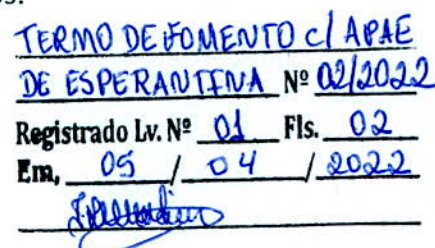 os.
TERMO DE FOMENTO c/ APAE
DE ESPERANTINA Nº 02/2022
Registrado Lv. Nº 01 Fls. 02
Em, 05 / 04 / 2022